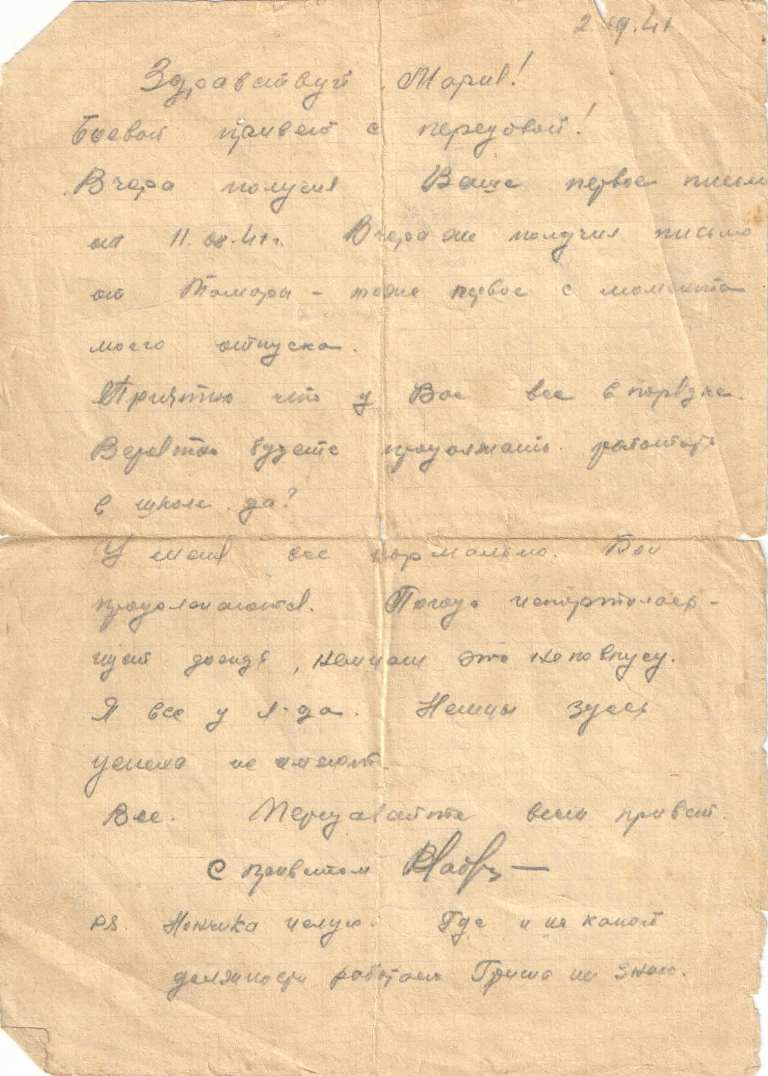 2.09.41
Здравствуй, Мария!
Боевой привет с передовой!
Вчера получил Ваше первое письмо
от 11.08.41г. Вчера же получил письмо
от Тамары - тоже первое с момента
моего отпуска.
Приятно что у Вас все в порядке.
Вероятно будете продолжать работать
в школе. да?
У меня все нормально. Бои
продолжаются. Погода испортилась -
идет дождь, немцам это не по вкусу.
Я все у Л-да. Немцы здесь
успеха не имеют
Все. Передавайте всем привет.
С приветом
PS. целую. Где и на какой
должности работает Гриша не знаю.